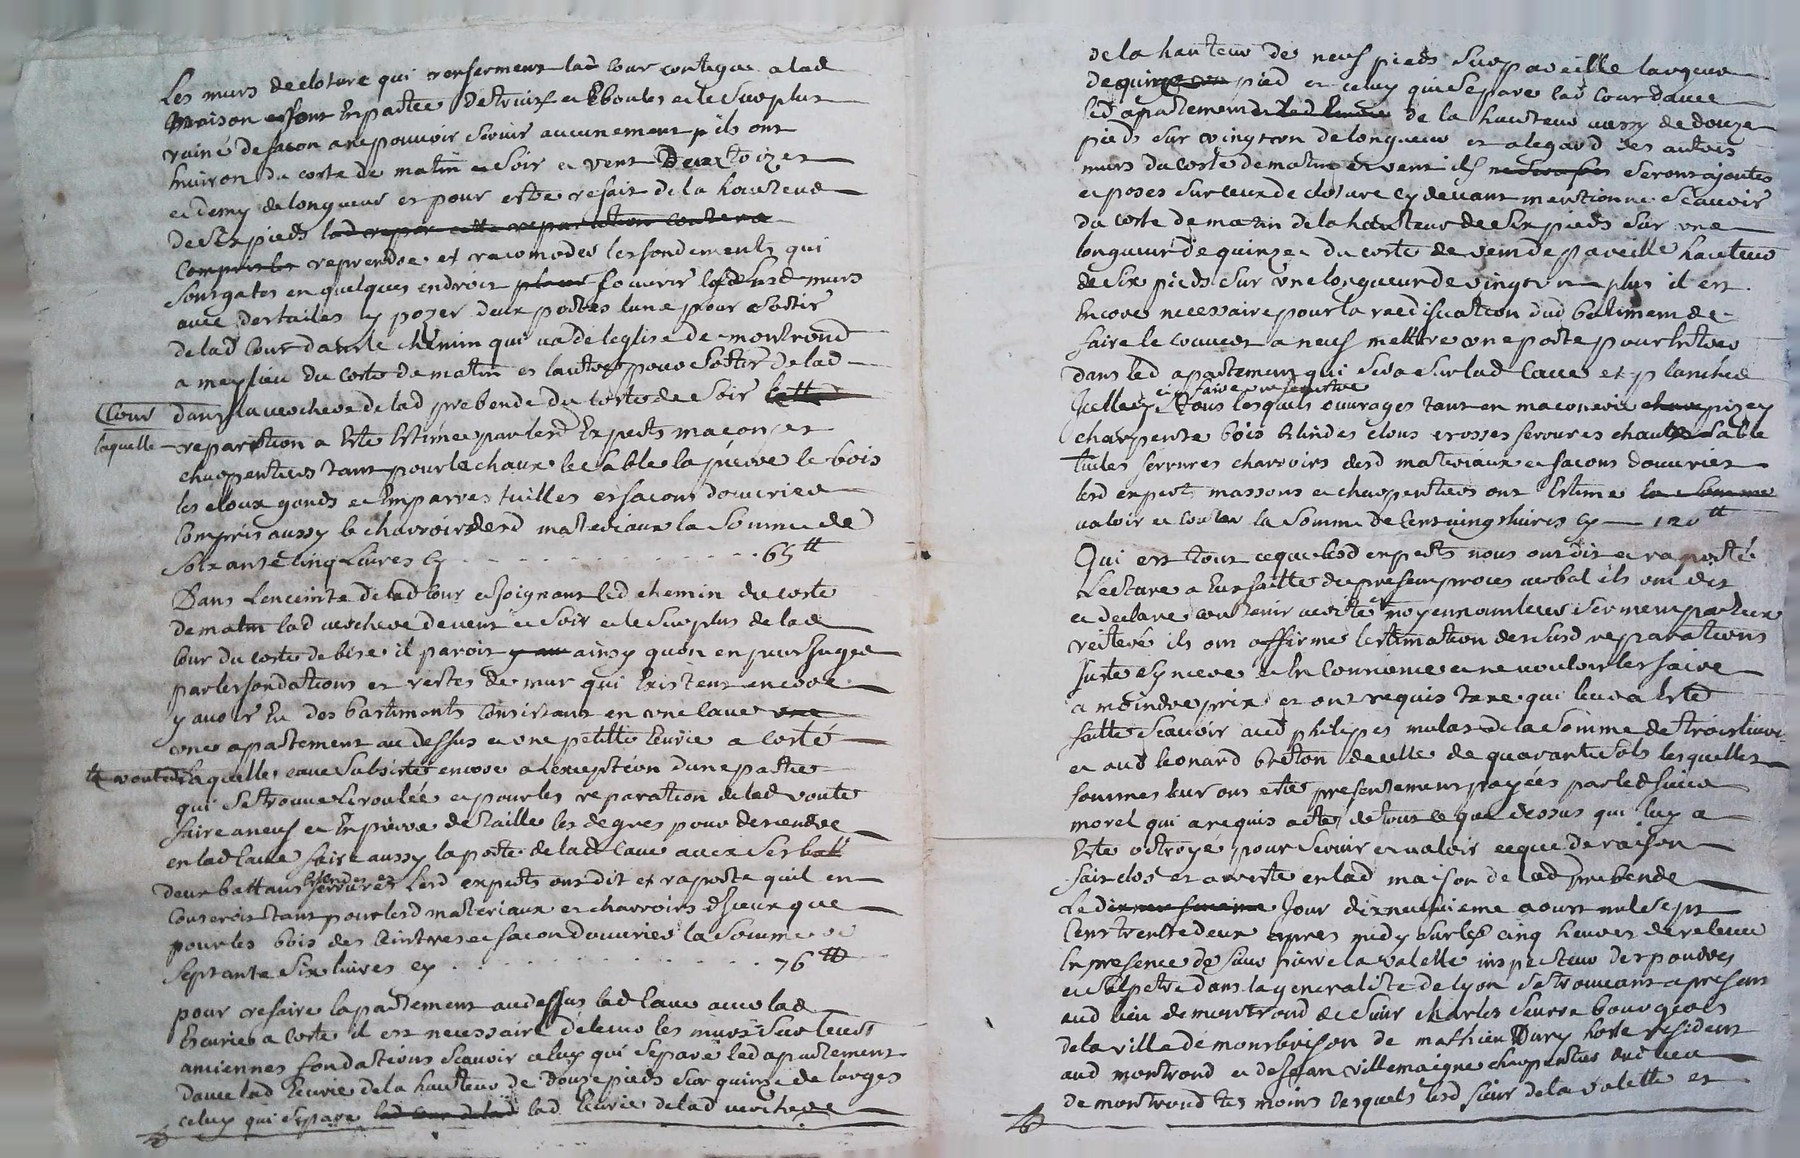 Les murs de cloture qui renferment lad cour contigue a lad
maison sont En partee Detruis et Eboules et le surplus
ruiné de facon a ne pouvoir servir aucunement p ils ont
huiron du coste de matin et soir et vent Deux toizes
et demy de longueur et pour estre refait de la hauteur
de six pieds lad repar cette reparation coutera
Compris les reprendre et racomoder les fondements qui
sont gates en quelques endroit couvrir lesd murs
avec des tuiles y poser deux portes lune pour sortir
de lad Cour dans le chemin qui va de leglise de montrond
a meylieu du coste de matin et lautre pour sortir de lad
Cour dans la verchere de lad prebende du coste de soir
laquelle reparation a Este Estimée par lesd Experts macon et
charpentiers tant pour la chaux le sable la pierre le bois
les cloux gonds et Emparres tuilles et facons douvriers
Compris aussy le charroir desd materiaux la somme de
soixante cinq Livres cy . . . 65 tt
Dans Lenceinte de lad Cour et joignant led chemin du coste
de matin lad verchere de vent et soir et le surplus de lad
Cour du coste de bise il paroit ainsy quon en peut juger
par les fondations et restes de mur qui Existent encore
y avoir Eu des bastiments Consistant en une Cave
une apartement au dessus et une petitte Ecurie a costé
laquelle cave subsiste encore a lexception dune partie
la voute
qui se trouve Ecroulée et pour les reparation de lad voute
faire a neuf et En pierre de taille les degres pour descendre
en lad Cave faire aussy la porte de lad Cave avec ses
deux battans serrures Lesd experts ont dit et raporte quil en
Couteroit tant pour lesd materiaux et charroirs diceux que
pour les bois des Ceintres et facon Douvriers la Somme de
septante six livres cy . . . 76 tt
pour refaire lapartement au dessus lad Cave avec lad
Ecurie a coste il est necessaire delever les murs sur leurs
anciennes fondations scavoir celuy qui separe led apartement
davec lad Ecurie de la hauteur de Douze pieds sur quinze de larges
celuy qui separe lad cour de lad lad Ecurie de lad verchere
de la hauteur de neuf pieds sur pareille largeur
de quinze pied et celuy qui separe lad Cour davec
led apartement de la hauteur aussy de douze
pieds sur vingt un de longueur et a legard des autres
murs du coste de matin et vent ils seront ajoutes
et poses sur ceux de cloture cy devant mentionne Scavoir
du coste de matin de la hauteur de six pieds sur une
longueur de quinze et du coste de vent de pareille hauteur
de six pieds sur une longueur de vingt un plus il est
Encore necessaire pour la raedification dud batiment de
faire le couvert a neuf mettre une porte pour Entrer
dans led apartement qui sera sur lad Cave et planched
Icelluy faire une fenestre Tous lesquels ouvrages tant en maconerie pizey
charpente bois blindes clous crosses serrures chaux sable
tuiles serrures charroirs desd materiaux et facons douvriers
lesd expert massons et charpentiers ont Estime la somme
valoir et couter la Somme de Cent vingt livres cy — 120 tt
Qui est tout ce que lesd experts nous ont dit et raporté
Lecture a Eux faitte du present proces verbal ils ont dit
et declare contenir verité et moyennant leur serment par Eux
reiteré ils ont affirme lestimation desusd reparations
juste sincere et En Conscience et ne vouloir les faire
a moindre prix et ont requis taxe qui leur a Esté
faitte Scavoir aud philipes mulard de la somme de trois livres
et aud leonard breton de celle de quarante sols lesquelles
sommes leur ont este presentement payées par led sieur
morel qui a requis acte de tout ce que dessus qui luy a
Este octroyé pour servir et valoir ce que de raison
fait clos et arreste en lad maison de lad prebende
Le dixneufvieme Jour dixneufvieme aoust mil sept
Cens trente deux apres midy sur les cinq heures de relevee
En presence de sieur pierre la valette inspecteur des poudres
et salpetre dans la generalité de lyon se trouvant a present
aud lieu de montrond de sieur charles seurre bourgeois
de la ville de montbrison de mathieu Dury hoste resident
aud montrond et de Jean villemaigne charpentier dud lieu
de montrond tesmoins lesquels led sieur de la valette et